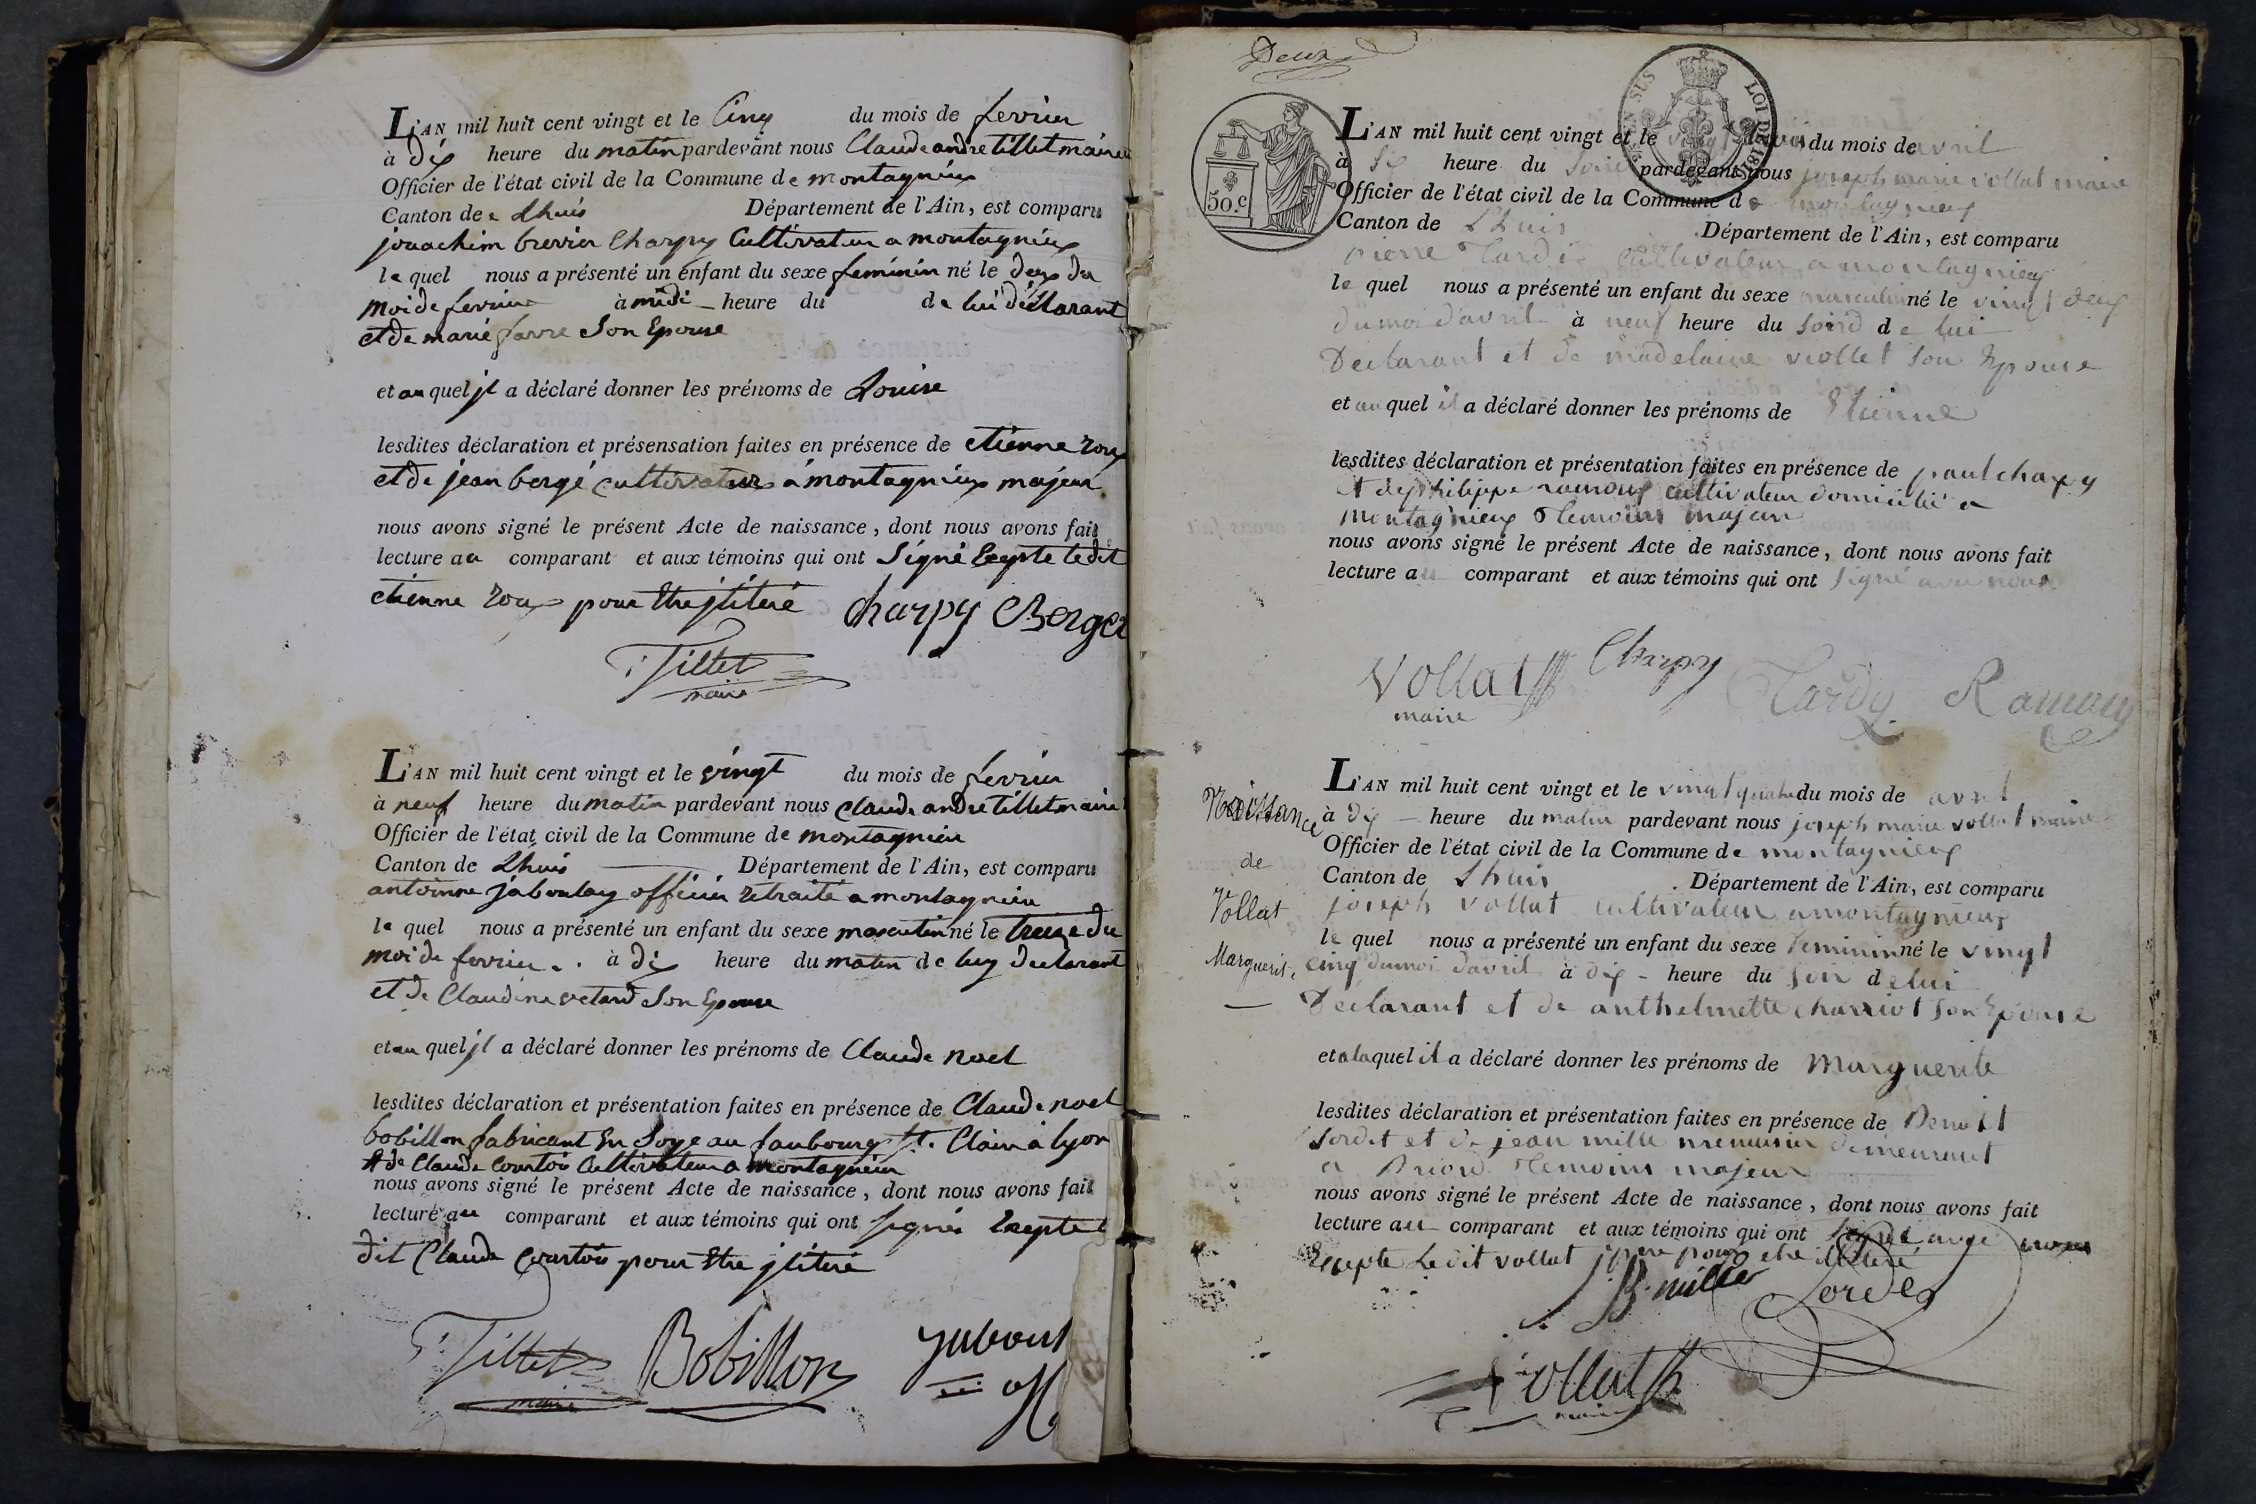 L'AN mil huit cent vingt et le Cinq du mois de fevrier
à dix heure du matin pardevant nous Claude andre tillet maire
Officier de l'état civil de la Commune de montagnieux
Canton de Lhuis Département de l'Ain, est comparu
jouachim brevier Charpy Cultivateur a montagnieux
le quel nous a présenté un enfant du sexe feminin né le deux du
moi de fevrier à midi heure du de lui déclarant
et de marie favre Son Epouse
et au quel jl a déclaré donner les prénoms de Louise
lesdites déclaration et présensation faites en présence de etienne roux
et de jean bergé cultivateur a montagnieux majeur
nous avons signé le présent Acte de naissance, dont nous avons fait
lecture au comparant et aux témoins qui ont Signé Exepte ledit
etienne roux pour Etre jliteré Charpy Berger
Tillet
maire
L'AN mil huit cent vingt et le vingt du mois de fevrier
à neuf heure du matin pardevant nous claude andre tillet maire
Officier de l'état civil de la Commune de montagnieu
Canton de Lhuis Département de l'Ain, est comparu
antoinne jaboulay officier retraité a montagnieu
le quel nous a présenté un enfant du sexe masculin né le treize du
moi de fevrier à dix heure du matin de luy declarant
et de Claudine vetard Son Epouse
et au quel jl a déclaré donner les prénoms de Claude noel
lesdites déclaration et présentation faites en présence de Claude noel
bobillon fabricant En Soye au faubourg St. Clair à lyon
et de Claude Courtois Cultivateur a montagnieu
nous avons signé le présent Acte de naissance, dont nous avons fait
lecture au comparant et aux témoins qui ont signés Exepte l
dit Claude Courtois pour Etre jliteré
Tillet Bobillon jaboul
maire off
Deux
EN SUS LOI DE 1816
50.c
L'AN mil huit cent vingt et le vingt du mois de avril
à Six heure du Soire pardevant nous joseph marie vollat maire
Officier de l'état civil de la Commune de montagnieux
Canton de Lhuis Département de l'Ain, est comparu
pierre Tardy cultivateur a montagnieux
le quel nous a présenté un enfant du sexe masculin né le vingt deux
du moi d'avril à neuf heure du Soird de lui
Declarant et de madelaine viollet son Epouse
et au quel il a déclaré donner les prénoms de Etienne
lesdites déclaration et présentation faites en présence de paul charpy
et de philippe ramoux cultivateur domicilié a
montagnieux temoins majeur
nous avons signé le présent Acte de naissance, dont nous avons fait
lecture au comparant et aux témoins qui ont Signé avec nous
Vollat Charpy Tardy Ramoux
maire
L'AN mil huit cent vingt et le vingt quatre du mois de avril
à dix heure du matin pardevant nous joseph marie vollat maire
Officier de l'état civil de la Commune de montagnieux
Canton de Lhuis Département de l'Ain, est comparu
joseph vollat cultivateur a montagnieux
le quel nous a présenté un enfant du sexe feminin né le vingt
cinq du moi d'avril à dix heure du Soir de lui
Déclarant et de anthelmette charriot son Epouse
Naissance
de
Vollat
Marguerite
et a laquel il a déclaré donner les prénoms de Marguerite
lesdites déclaration et présentation faites en présence de Benoit
Sordet et de jean mille menuisier demeurant
a Briord temoins majeur
nous avons signé le présent Acte de naissance, dont nous avons fait
lecture au comparant et aux témoins qui ont Signé avec nous
Excepte Ledit vollat pour etre illiteré
mille Sordet
Vollat
maire